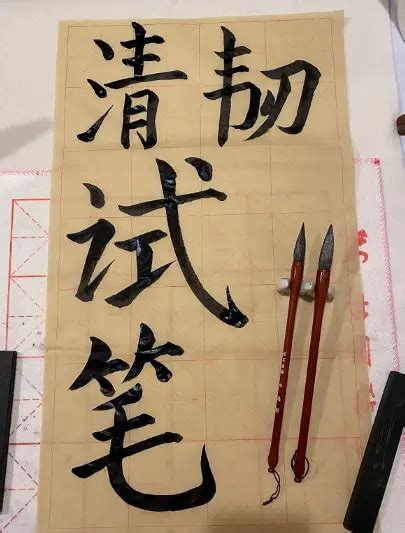 清韧
试
笔